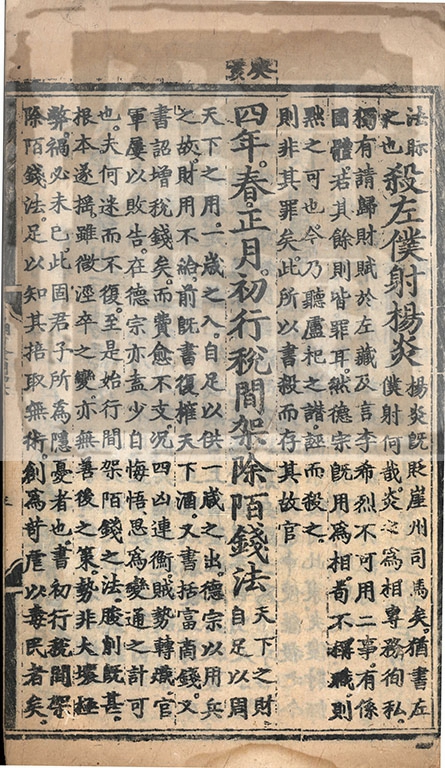 法眎
之也
殺左僕射楊炎
楊炎既貶崖州司馬矣。猶書左
僕射何哉。炎之爲相專務徇私。
獨有請歸財賦於左藏及言李希烈不可用二事。有係
國體。若其餘則皆罪耳。然德宗既用爲相。苟不稱職則
黙之可也。今乃聽盧杞之譖誣而殺之。
則非其罪矣。此所以書殺而存其故官
四年。春。正月。初行稅間架除陌錢法
天下之財
自足以周
天下之用。一歲之入。自足以供一歲之出。德宗以用兵
之故。財用不給。前既書復榷天下酒。又書括富商錢。又
書詔增稅錢矣。而費愈不支。況四凶連衡。賊勢轉熾。官
軍屢以敗告。在德宗亦盍少自悔悟。思爲變通之計可
也。夫何迷而不復。至是始行間架陌錢之法。朘創既甚。
根本遂揺。雖微涇卒之變。亦無善後之策。勢非大壞極
弊。禍必未已。此固君子所爲隱憂者也。書初行稅間架
除陌錢法。足以知其掊取無術。創爲苛虐以毒民者矣。